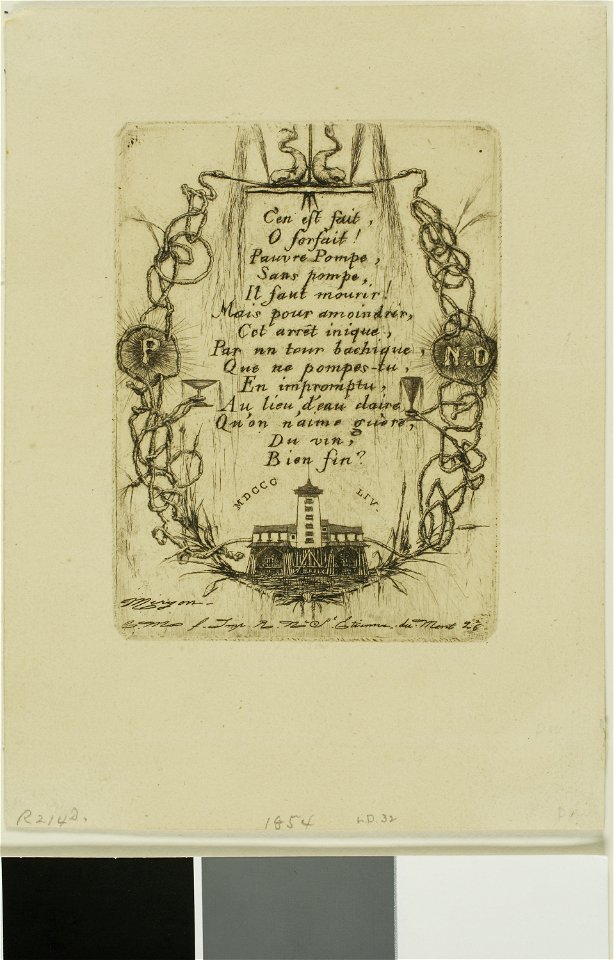 C'en est fait,
O forfait!
Pauvre Pompe,
Sans pompe,
Il faut mourir!
Mais pour amoindrir,
Cet arrêt inique,
Par un tour bachique,
Que ne pompes-tu,
En impromptu,
Au lieu d'eau claire
Qu'on n'aime guère,
Du vin,
Bien fin?
P
N D
P
MDCCC LIV.
Meryon
C M f. Imp. R. Nve St. Etienne-du-Mont 26.
R214D.
1854
L.D. 32